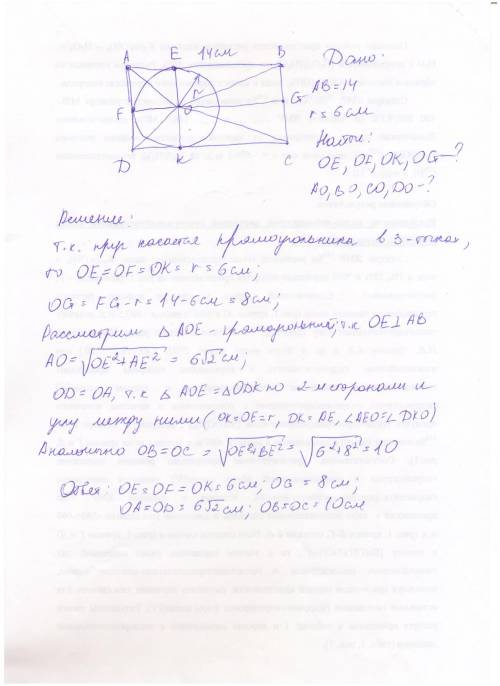 A E 14см B
Дано:
AB=14
r=6см
Найти:
OE, OF, OK, OG—?
AO, BO, CO, DO—?
r
O
F
G
D K C
Решение:
т.к. круг касается прямоугольника в 3-точках,
то OE=OF=OK=r=6см;
OG=FG-r=14-6см=8см;
Рассмотрим △AOE-прямоугольный, т.к OE⊥AB
AO=√OE²+AE² = 6√2см;
OD=OA, т.к △AOE=△ODK по 2-м сторонам и
углу между ними (OK=OE=r, DK=AE, ∠AEO=∠DKO)
Аналогично OB=OC=√OE²+BE²=√6²+8²=10
Ответ: OE=OF=OK=6см; OG=8см;
OA=OD=6√2см; OB=OC=10см